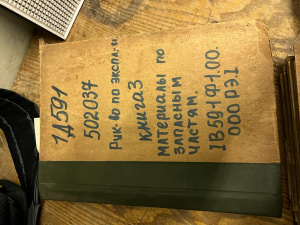 1Д591
502037
Рук-во по экспл.-и
книга 3
материалы по
запасным
частям.
1В591Ф1.00.
000 РЭ1